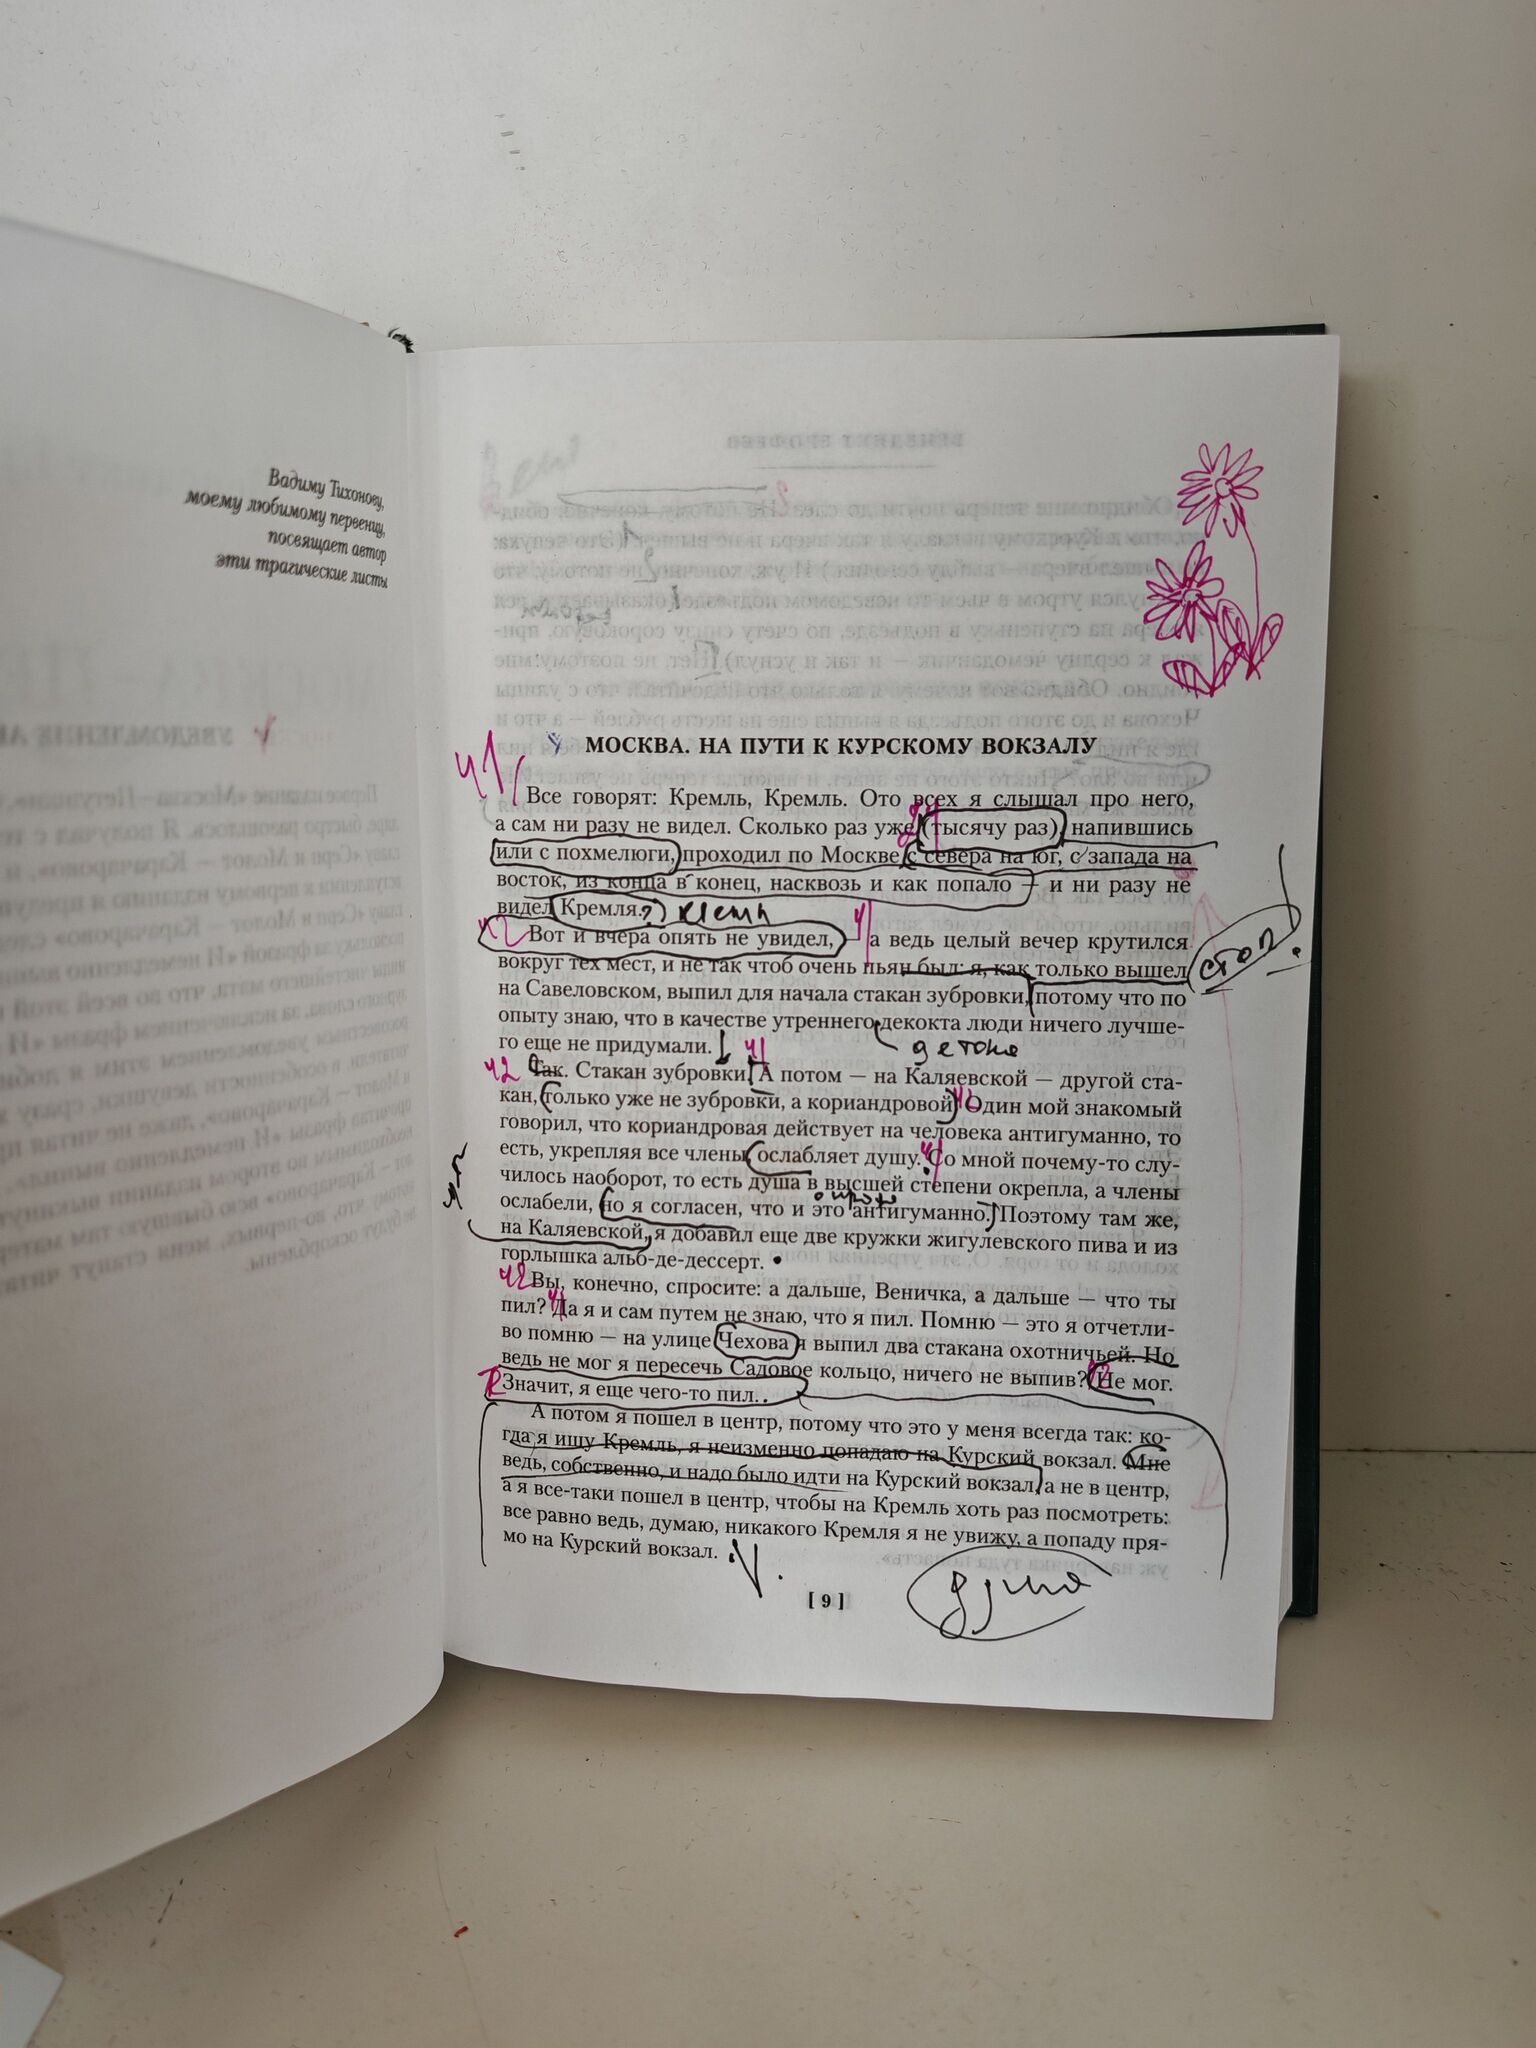 Вадиму Тихонову,
моему любимому первенцу,
посвящает автор
эти трагические листы
МОСКВА. НА ПУТИ К КУРСКОМУ ВОКЗАЛУ
ч1
Все говорят: Кремль, Кремль. Ото всех я слышал про него,
а сам ни разу не видел. Сколько раз уже (тысячу раз), напившись
или с похмелюги, проходил по Москве с севера на юг, с запада на
восток, из конца в конец, насквозь и как попало — и ни разу не
видел Кремля.
ч2
Вот и вчера опять не увидел, — а ведь целый вечер крутился
вокруг тех мест, и не так чтоб очень пьян был: я, как только вышел
стоп!
на Савеловском, выпил для начала стакан зубровки, потому что по
опыту знаю, что в качестве утреннего декокта люди ничего лучше-
го еще не придумали.
ч1
ч2
Так. Стакан зубровки. А потом — на Каляевской — другой ста-
кан, только уже не зубровки, а кориандровой. Один мой знакомый
говорил, что кориандровая действует на человека антигуманно, то
есть, укрепляя все члены, ослабляет душу. Со мной почему-то слу-
чилось наоборот, то есть душа в высшей степени окрепла, а члены
ослабели, но я согласен, что и это антигуманно. Поэтому там же,
на Каляевской, я добавил еще две кружки жигулевского пива и из
горлышка альб-де-дессерт.
ч2
Вы, конечно, спросите: а дальше, Веничка, а дальше — что ты
пил? Да я и сам путем не знаю, что я пил. Помню — это я отчетли-
во помню — на улице Чехова я выпил два стакана охотничьей. Но
ведь не мог я пересечь Садовое кольцо, ничего не выпив? Не мог.
Значит, я еще чего-то пил..
А потом я пошел в центр, потому что это у меня всегда так: ко-
гда я ищу Кремль, я неизменно попадаю на Курский вокзал. Мне
ведь, собственно, и надо было идти на Курский вокзал, а не в центр,
а я все-таки пошел в центр, чтобы на Кремль хоть раз посмотреть:
все равно ведь, думаю, никакого Кремля я не увижу, а попаду пря-
мо на Курский вокзал.
[ 9 ]